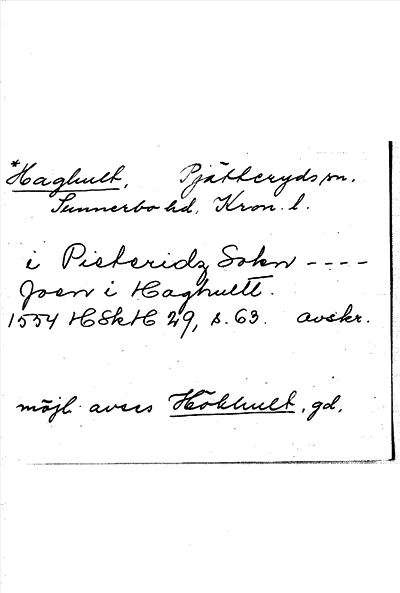 *Haghult, Pjätteryds sn.
Sunnerbo hd, Kron. l.
i Pieteridz Sokn ----
Joen i Haghultt.
1554 HSkH 29, s. 63. avskr.
möjl. avses Hökhult, gd.